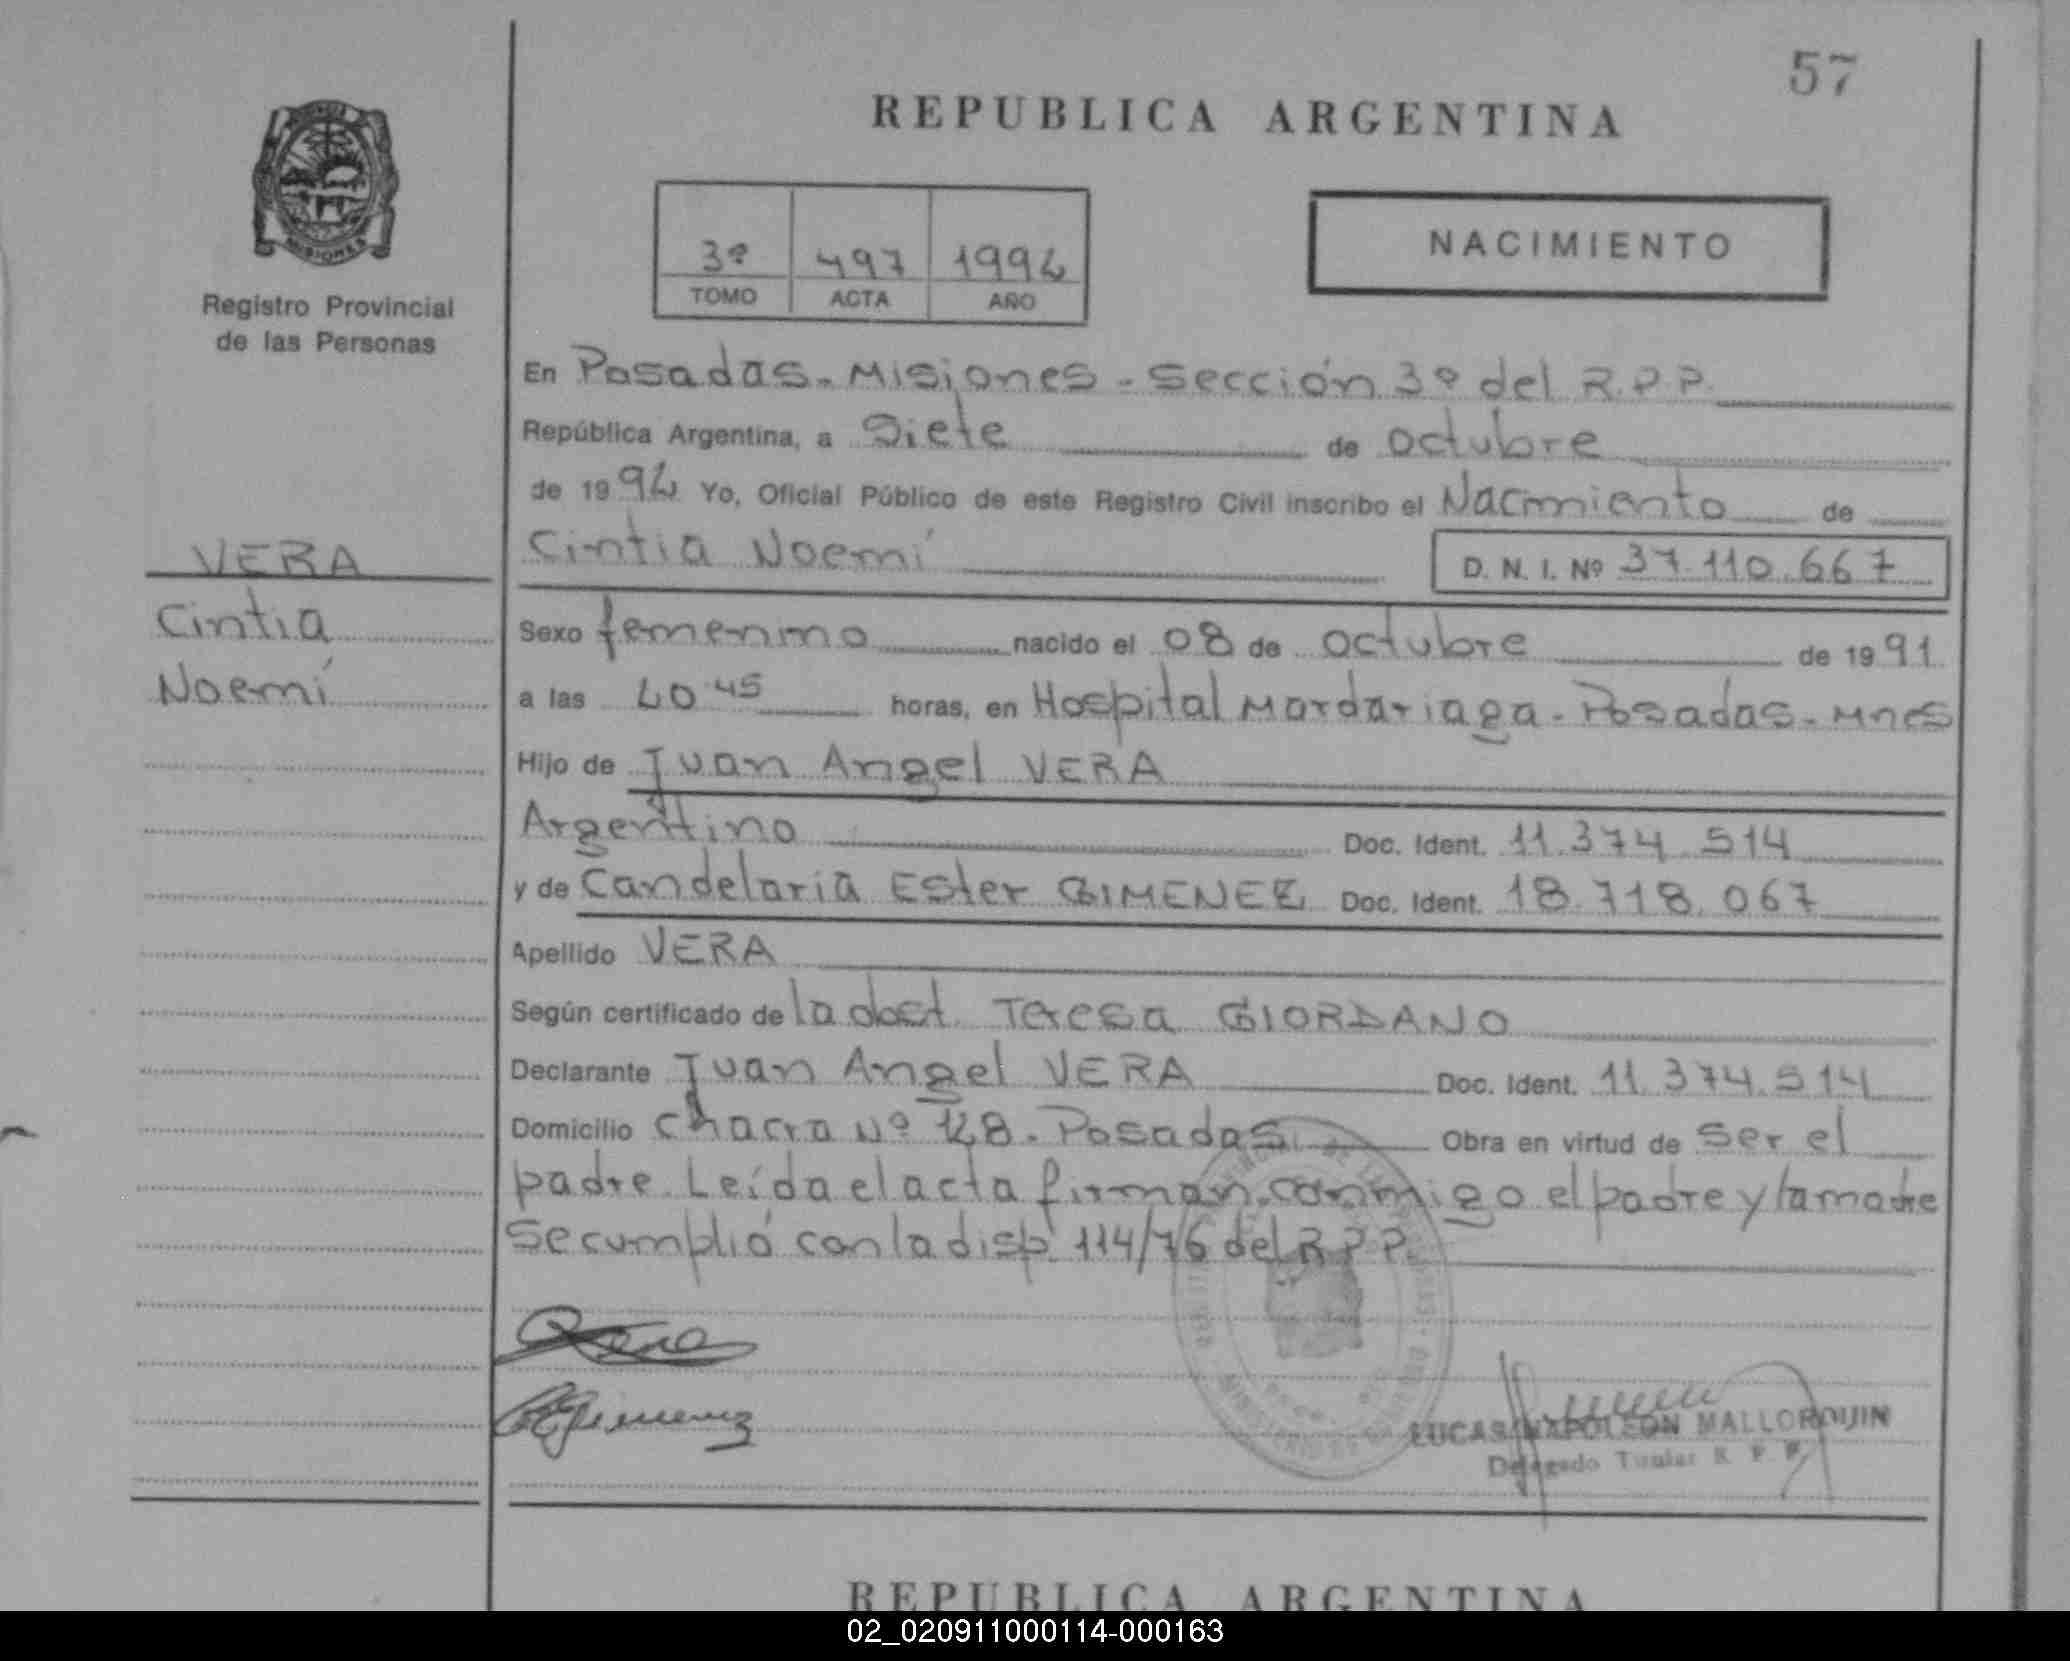 57
REPUBLICA ARGENTINA
3º 497 1992
TOMO ACTA AÑO
NACIMIENTO
MISIONES
Registro Provincial
de las Personas
VERA
Cintia
Noemí
En Posadas - Misiones - Sección 3º del R.P.P.
República Argentina, a Siete de octubre
de 1992 Yo, Oficial Público de este Registro Civil inscribo el Nacimiento de
Cintia Noemí D. N. I. Nº 37.110.667
Sexo femenino nacido el 08 de octubre de 1991
a las 20 45 horas, en Hospital Mardariaga - Posadas - Mnes
Hijo de Juan Angel VERA
Argentino Doc. Ident. 11.374.514
y de Candelaria Ester GIMENEZ Doc. Ident. 18.718.067
Apellido VERA
Según certificado de la obst. Teresa GIORDANO
Declarante Juan Angel VERA Doc. Ident. 11.374.514
Domicilio Chacra Nº 128 - Posadas Obra en virtud de ser el
padre. Leída el acta firman conmigo el padre y la madre
Se cumplió con la disp. 114/76 del R.P.P.
LUCAS NAPOLEON MALLORQUIN
Delegado Titular R. P. P.
REPUBLICA ARGENTINA
02_020911000114-000163